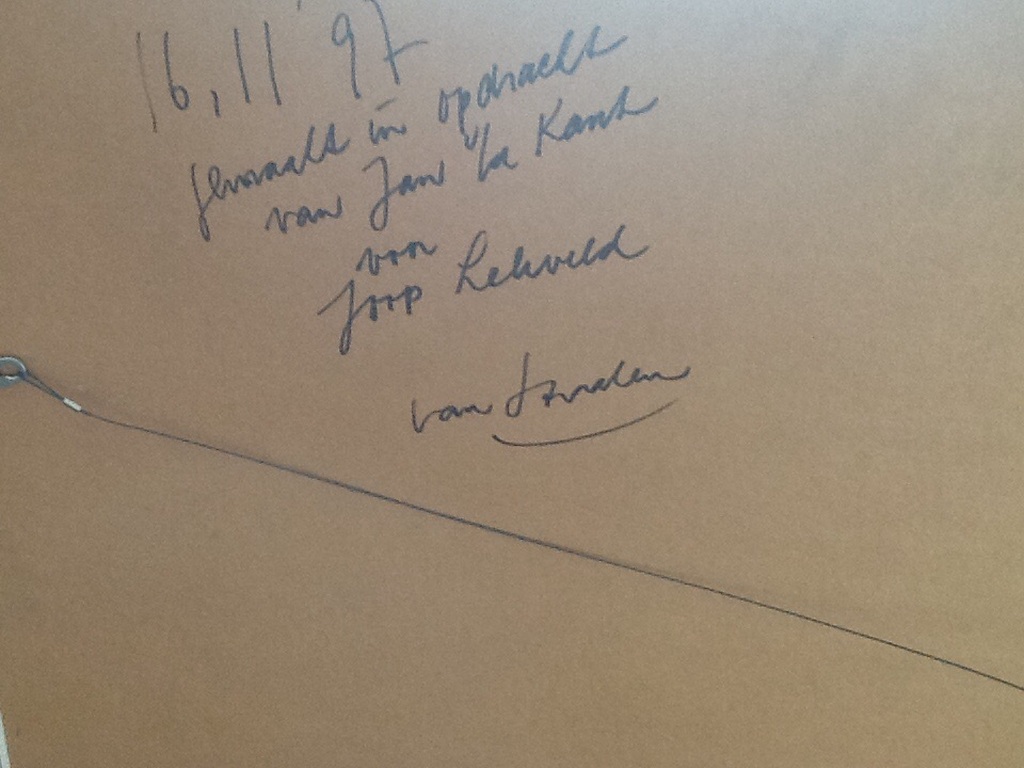 16, 11 '97
Gemaakt in opdracht
van Jan v/d Kant
voor
Joop Lelieveld
van